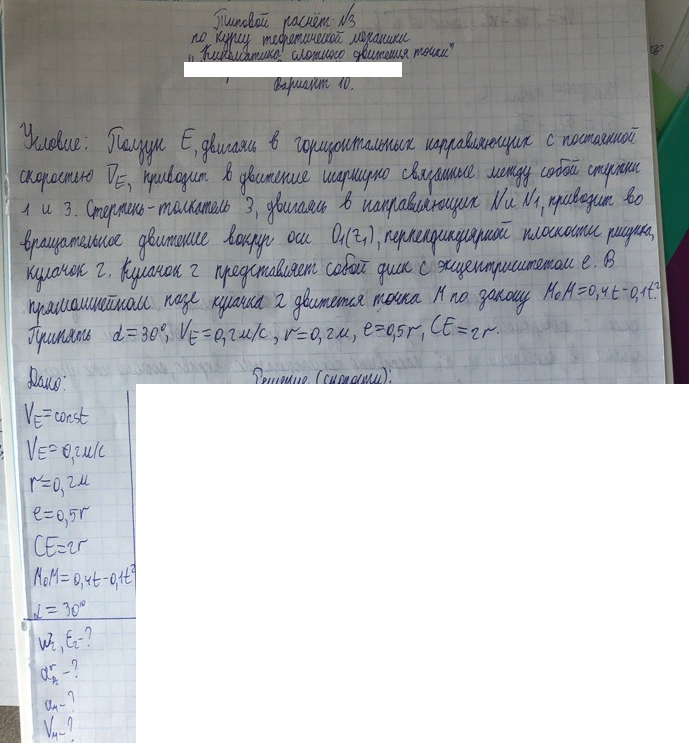 Типовой расчёт №3
по курсу теоретической механики
"Кинематика сложного движения точки"
Вариант 10.
Условие: Ползун E, двигаясь в горизонтальных направляющих с постоянной
скоростью V̅E, приводит в движение шарнирно связанные между собой стержни
1 и 3. Стержень-толкатель 3, двигаясь в направляющих N и N1, приводит во
вращательное движение вокруг оси O1(z1), перпендикулярной плоскости рисунка,
кулачок 2. Кулачок 2 представляет собой диск с эксцентриситетом e. В
прямолинейном пазе кулачка 2 движется точка M по закону M0M=0,4t-0,1t².
Принять α=30°, VE=0,2м/с, r=0,2м, e=0,5r, CE=2r.
Дано: Решение (скорости):
VE=const
VE=0,2м/с
r=0,2м
e=0,5r
CE=2r
M0M=0,4t-0,1t²
α=30°
ω2, ε2-?
-?
aM-?
VM-?